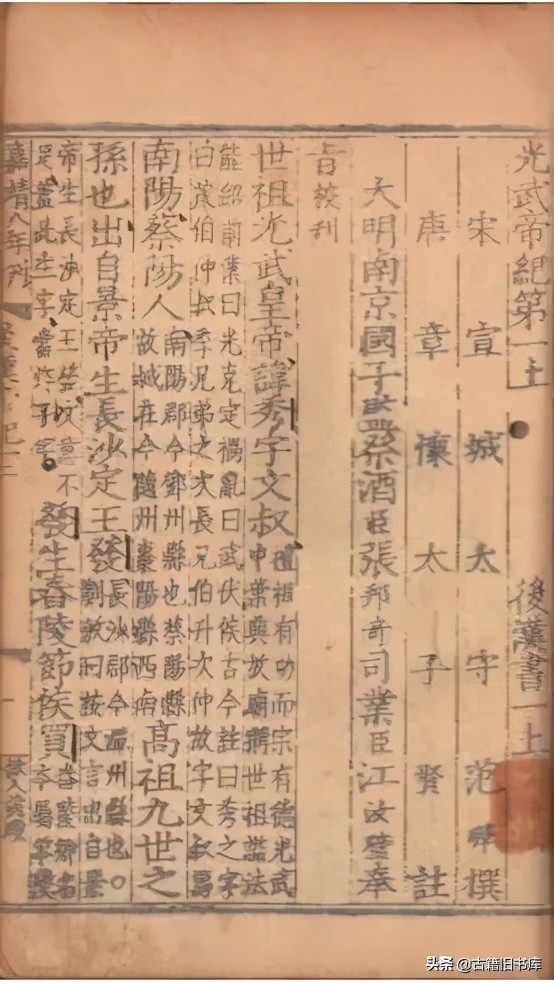 光武帝紀第一上　後漢書一上
宋宣城太守范曄撰
唐章懷太子賢註
大明南京國子監祭酒臣張邦奇司業臣江汝璧奉
旨校刊
世祖光武皇帝諱秀字文叔
禮祖有功而宗有德光武
中葉興故廟稱世祖諡法
能紹前業曰光克定禍亂曰武伏侯古今註曰秀之字
曰茂伯仲叔季兄弟之次長兄伯升次仲故字文叔焉
南陽蔡陽人
南陽郡今鄧州縣也蔡陽縣
故城在今隨州棗陽縣西南
高祖九世之
孫也出自景帝生長沙定王發
長沙郡今潭州縣也○
劉攽曰按文言出自景
帝生長沙定王文意不
足蓋此生字當作子字
發生舂陵節侯買
舂陵鄉名
本屬零陵
嘉靖八年刊
一
头条 @古籍旧书库